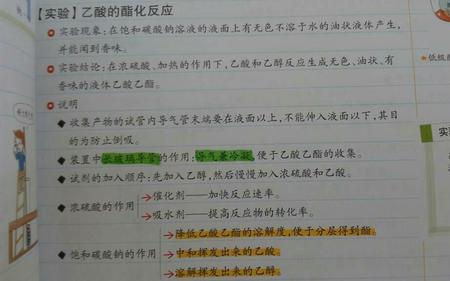 【实验】乙酸的酯化反应
实验现象:在饱和碳酸钠溶液的液面上有无色不溶于水的油状液体产生,
并能闻到香味。
实验结论:在浓硫酸、加热的作用下,乙酸和乙醇反应生成无色、油状、有
香味的液体乙酸乙酯。
说明
◆收集产物的试管内导气管末端要在液面以上,不能伸入液面以下,其目
的为防止倒吸。
◆装置中长玻璃导管的作用:导气兼冷凝,便于乙酸乙酯的收集。
◆试剂的加入顺序:先加入乙醇,然后慢慢加入浓硫酸和乙酸。
◆浓硫酸的作用
→催化剂——加快反应速率。
→吸水剂——提高反应物的转化率。
◆饱和碳酸钠的作用
→降低乙酸乙酯的溶解度,便于分层得到酯。
→中和挥发出来的乙酸。
→溶解挥发出来的乙醇。
★低级
实